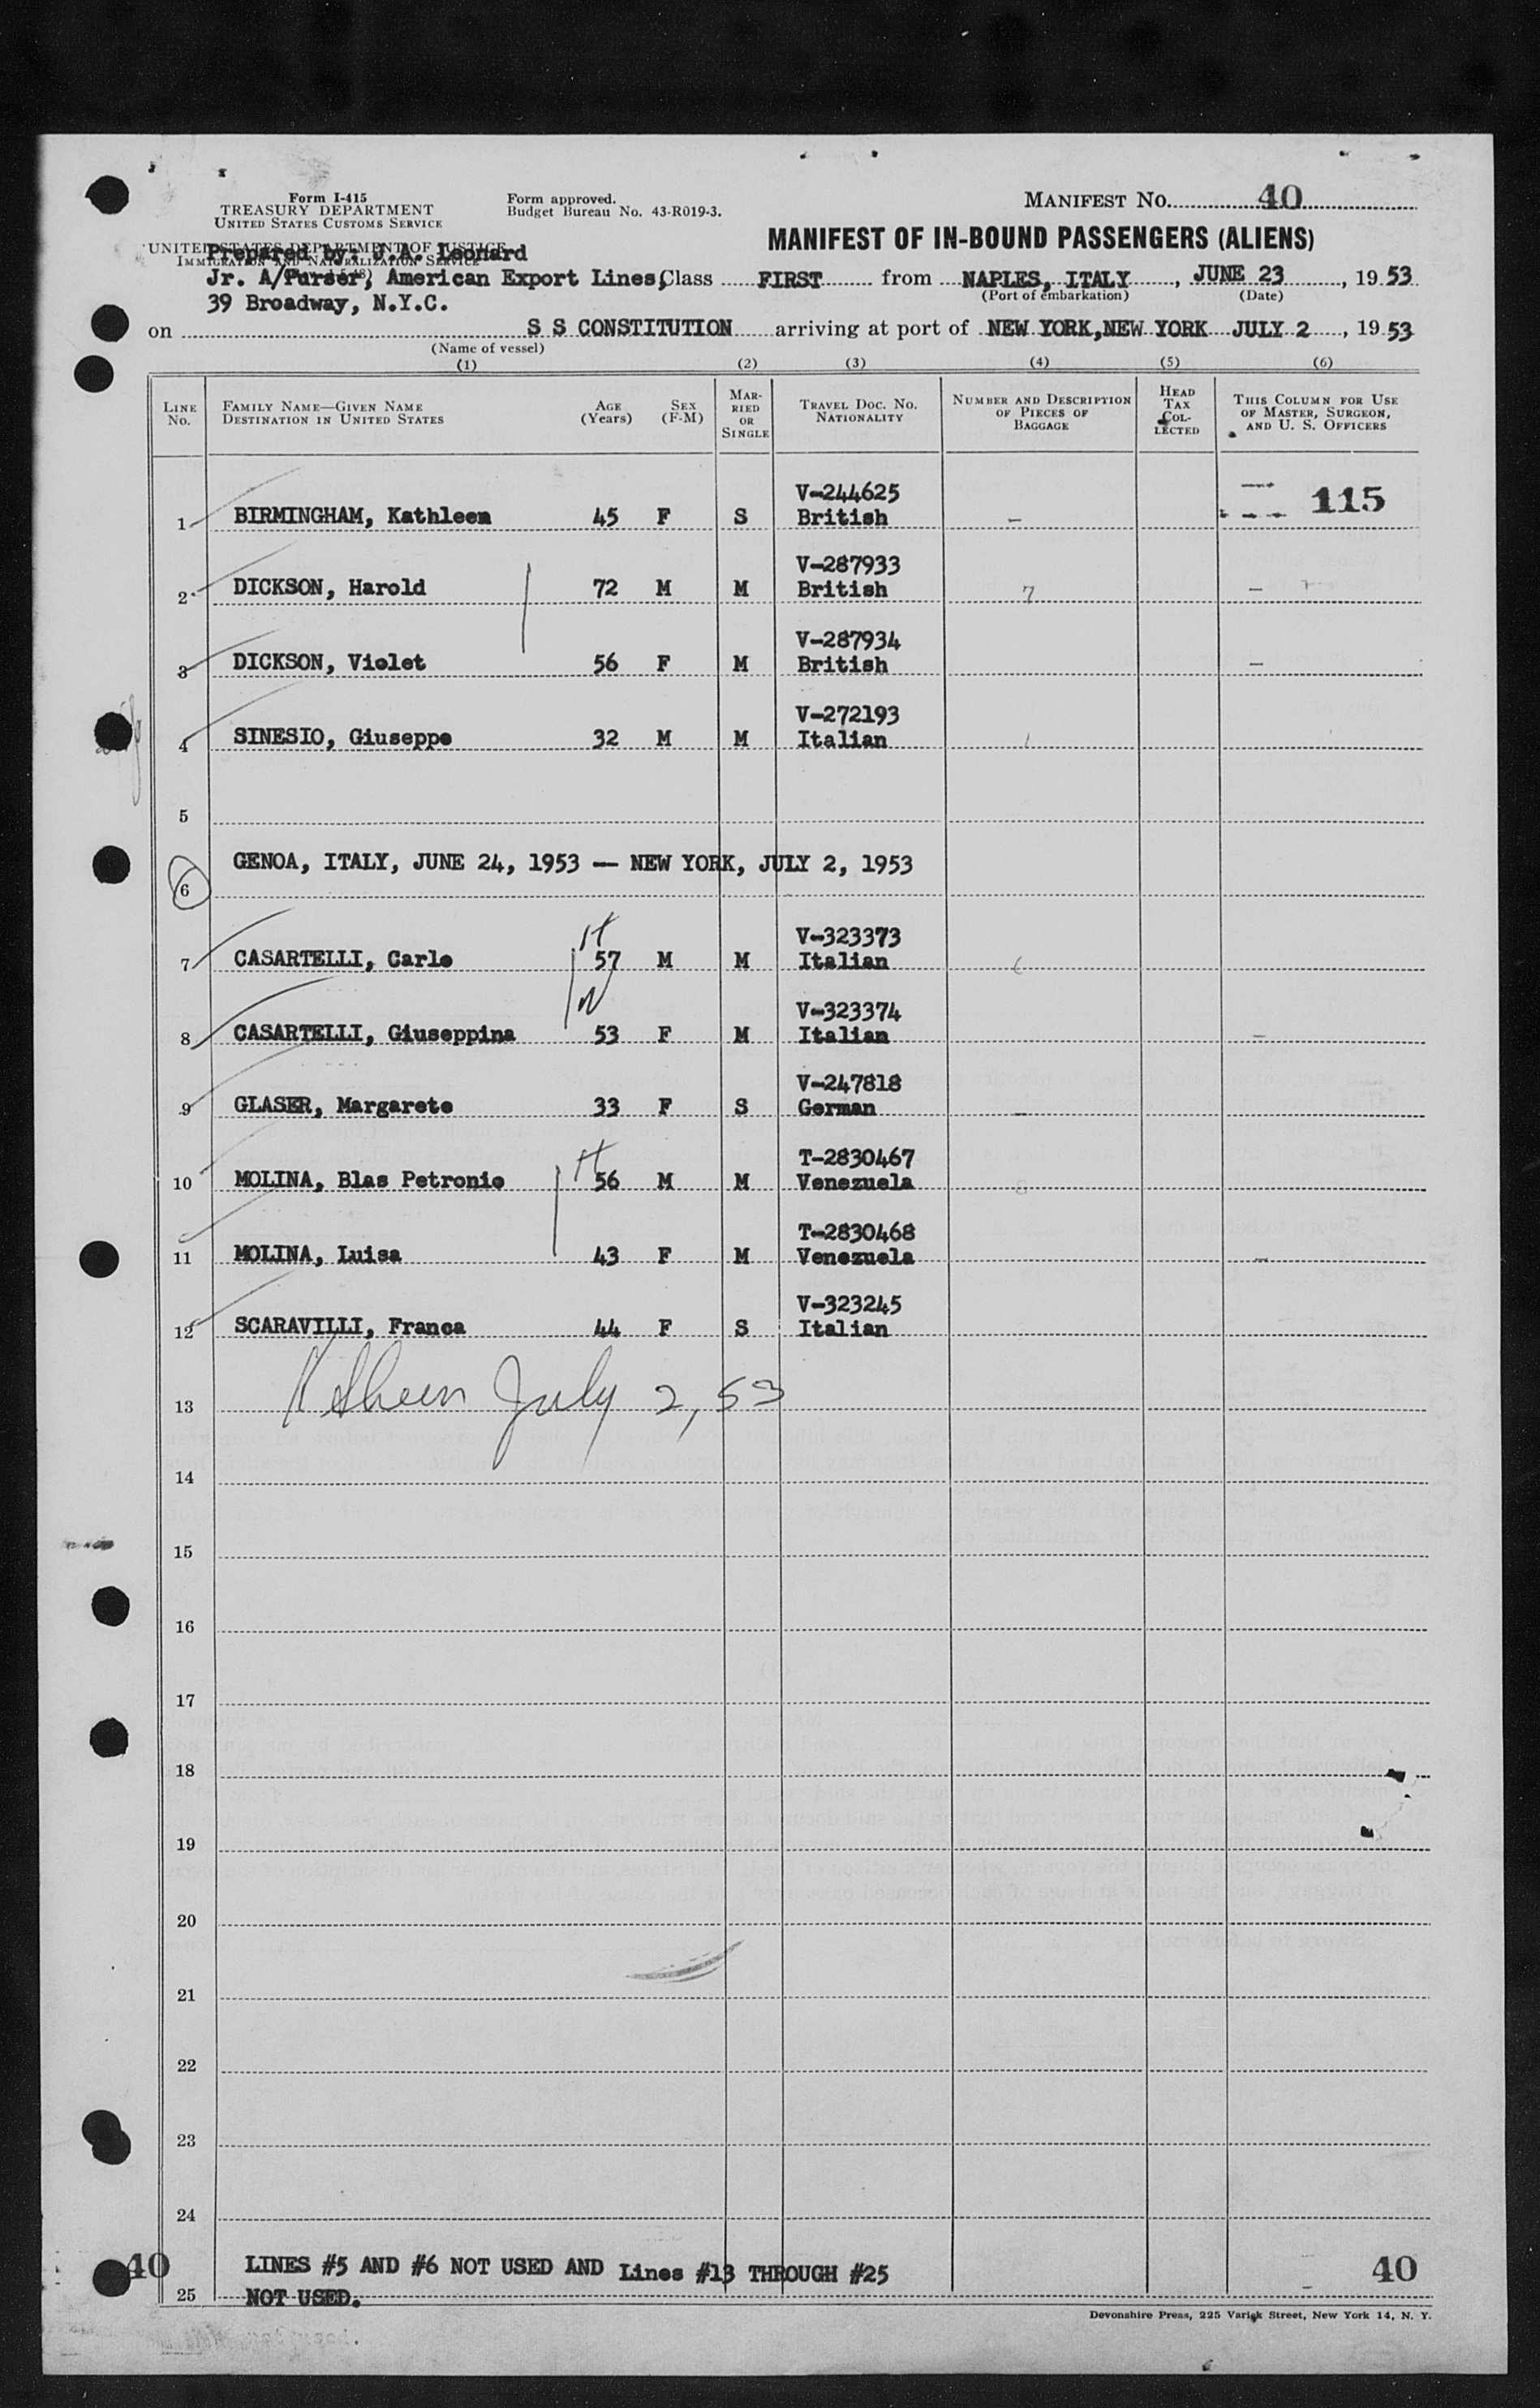 Form I-415
TREASURY DEPARTMENT
UNITED STATES CUSTOMS SERVICE
UNITED STATES DEPARTMENT OF JUSTICE
IMMIGRATION AND NATURALIZATION SERVICE
Form approved.
Budget Bureau No. 43-R019-3.
MANIFEST NO. 40
MANIFEST OF IN-BOUND PASSENGERS (ALIENS)
Prepared by: J.A. Leonard
Jr. A/Purser, American Export Lines, Class FIRST from NAPLES, ITALY, JUNE 23, 1953
(Port of embarkation) (Date)
39 Broadway, N.Y.C.
on S S CONSTITUTION arriving at port of NEW YORK, NEW YORK JULY 2, 1953
(Name of vessel)
(1) (2) (3) (4) (5) (6)
LINE NO. FAMILY NAME—GIVEN NAME DESTINATION IN UNITED STATES AGE (Years) SEX (F-M) MARRIED OR SINGLE TRAVEL DOC. NO. NATIONALITY NUMBER AND DESCRIPTION OF PIECES OF BAGGAGE HEAD TAX COLLECTED THIS COLUMN FOR USE OF MASTER, SURGEON, AND U. S. OFFICERS
V-244625
1 BIRMINGHAM, Kathleen 45 F S British – 115
V-287933
2 DICKSON, Harold 72 M M British 7 –
V-287934
3 DICKSON, Violet 56 F M British –
V-272193
4 SINESIO, Giuseppe 32 M M Italian 1
5
GENOA, ITALY, JUNE 24, 1953 — NEW YORK, JULY 2, 1953
6
H
V-323373
7 CASARTELLI, Carlo 57 M M Italian
W
V-323374
8 CASARTELLI, Giuseppina 53 F M Italian –
V-247818
9 GLASER, Margarete 33 F S German –
H
T-2830467
10 MOLINA, Blas Petronio 56 M M Venezuela 8
T-2830468
11 MOLINA, Luisa 43 F M Venezuela –
V-323245
12 SCARAVILLI, Franca 44 F S Italian
July 2, 53
13
14
15
16
17
18
19
20
21
22
23
24
40 LINES #5 AND #6 NOT USED AND Lines #13 THROUGH #25 40
25 NOT USED.
Devonshire Press, 225 Varick Street, New York 14, N. Y.